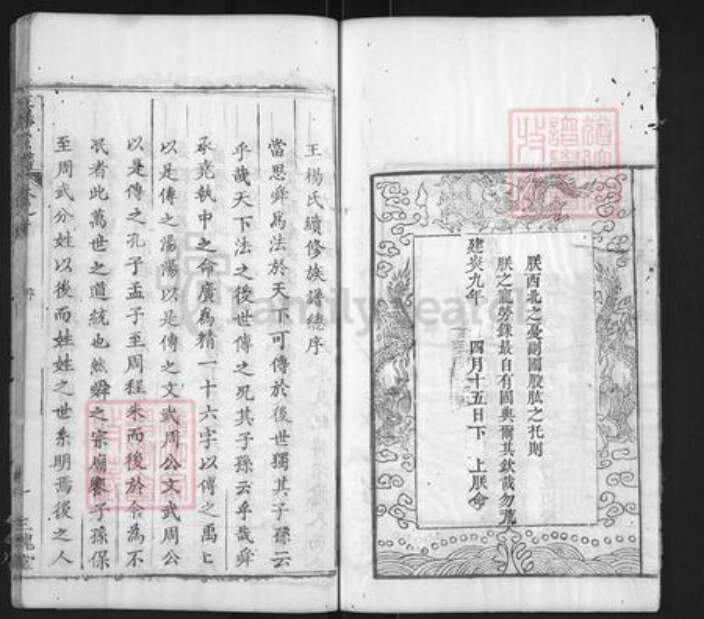 朕西北之憂副國股肱之托則
朕之寵勞錄最自有國典爾其欽哉勿荒
建炎九年　四月十五日下　上朕命
王楊氏續修族譜總序
當思舜為法於天下可傳於後世獨其子孫云
乎哉天下法之後世傳之況其子孫云乎哉舜
承堯執中之命廣為精一十六字以傳之禹禹
以是傳之湯湯以是傳之文武周公文武周公
以是傳之孔子孟子至周程朱而後於今為不
泯者此萬世之道統也然舜之宗廟饗子孫保
至周武分姓以後而姓姓之世系明焉後之人
序
一
三槐堂
FamilySearch